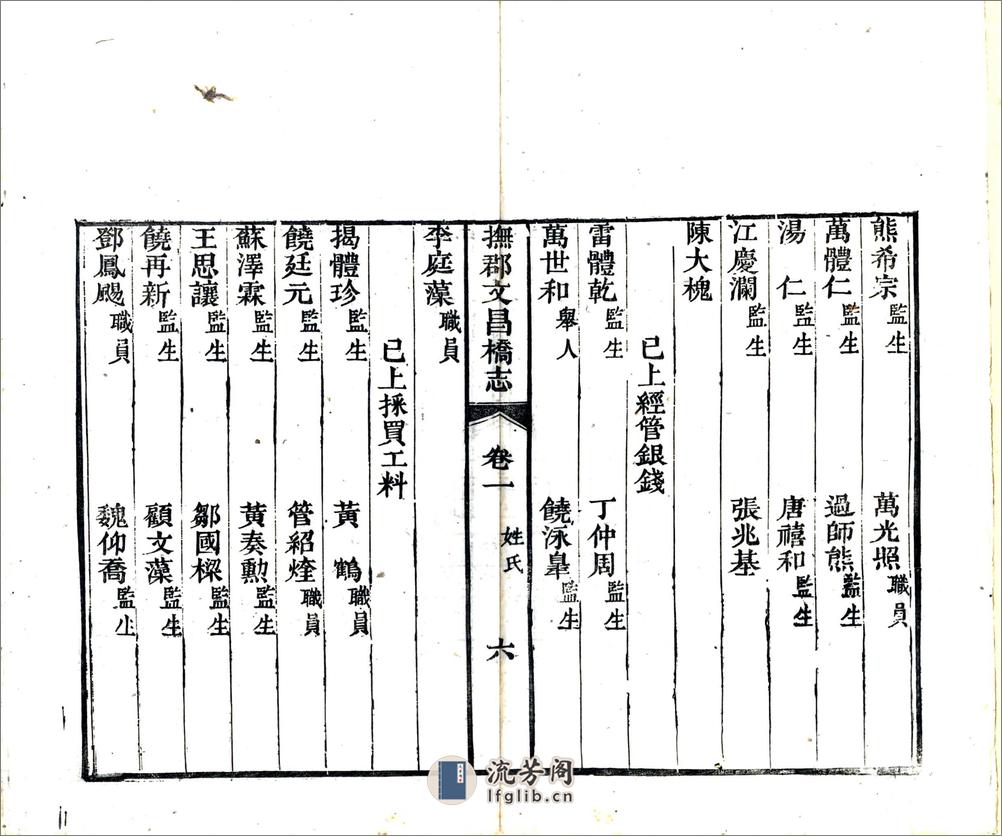 熊希宗監生 萬光照職員
萬體仁監生 過師熊監生
湯 仁監生 唐禧和監生
江慶瀾監生 張兆基
陳大槐
已上經管銀錢
雷體乾監生 丁仲周監生
萬世和舉人 饒泳臯監生
撫郡文昌橋志 卷一 姓氏 六
李庭藻職員
已上採買工料
揭體珍監生 黃 鶴職員
饒廷元監生 管紹煃職員
蘇澤霖監生 黃奏勲監生
王思讓監生 鄒國樑監生
饒再新監生 顧文藻監生
鄧鳳颺職員 魏仰喬監生
流芳阁
lfglib.cn